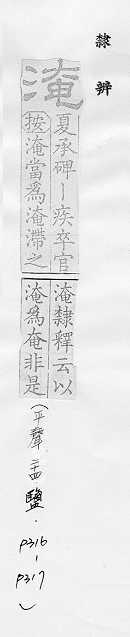 隸辨
淹
夏承碑丨疾卒官
按淹當爲淹滯之
淹隸釋云以
淹爲奄非是
(平聲二十四鹽.
P316-
P317)